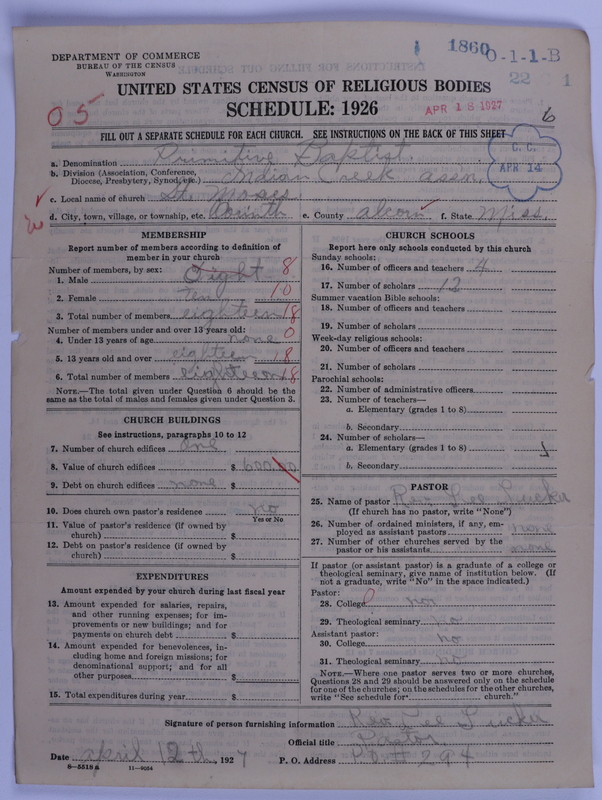 1860 0-1-1-B
22 1
DEPARTMENT OF COMMERCE
BUREAU OF THE CENSUS
WASHINGTON
UNITED STATES CENSUS OF RELIGIOUS BODIES
SCHEDULE: 1926
05
APR 18 1927
6
FILL OUT A SEPARATE SCHEDULE FOR EACH CHURCH. SEE INSTRUCTIONS ON THE BACK OF THIS SHEET
C. C.
APR 14
a. Denomination Primitive Baptist.
b. Division (Association, Conference, Diocese, Presbytery, Synod, etc.) Indian Creek assn.
c. Local name of church St. Moses
d. City, town, village, or township, etc. Corinth e. County alcorn f. State Miss.
MEMBERSHIP
Report number of members according to definition of
member in your church
Number of members, by sex:
1. Male Eight 8
2. Female Ten 10
3. Total number of members eighteen 18
Number of members under and over 13 years old:
4. Under 13 years of age none 0
5. 13 years old and over eighteen 18
6. Total number of members eighteen 18
NOTE.—The total given under Question 6 should be the
same as the total of males and females given under Question 3.
CHURCH BUILDINGS
See instructions, paragraphs 10 to 12
7. Number of church edifices one
8. Value of church edifices $ 600.00
9. Debt on church edifices none $
10. Does church own pastor's residence no
Yes or No
11. Value of pastor's residence (if owned by
church) $
12. Debt on pastor's residence (if owned by
church) $
EXPENDITURES
Amount expended by your church during last fiscal year
13. Amount expended for salaries, repairs,
and other running expenses; for im-
provements or new buildings; and for
payments on church debt $
14. Amount expended for benevolences, in-
cluding home and foreign missions; for
denominational support; and for all
other purposes $
15. Total expenditures during year $
CHURCH SCHOOLS
Report here only schools conducted by this church
Sunday schools:
16. Number of officers and teachers 4
17. Number of scholars 12
Summer vacation Bible schools:
18. Number of officers and teachers
19. Number of scholars
Week-day religious schools:
20. Number of officers and teachers
21. Number of scholars
Parochial schools:
22. Number of administrative officers
23. Number of teachers—
a. Elementary (grades 1 to 8)
b. Secondary
24. Number of scholars—
a. Elementary (grades 1 to 8)
b. Secondary
PASTOR
25. Name of pastor Rev Lee Tucker
(If church has no pastor, write "None")
26. Number of ordained ministers, if any, em-
ployed as assistant pastors none
27. Number of other churches served by the
pastor or his assistants none
If pastor (or assistant pastor) is a graduate of a college or
theological seminary, give name of institution below. (If
not a graduate, write "No" in the space indicated.)
Pastor:
28. College no
29. Theological seminary no
Assistant pastor:
30. College no
31. Theological seminary no
NOTE.—Where one pastor serves two or more churches,
Questions 28 and 29 should be answered only on the schedule
for one of the churches; on the schedules for the other churches,
write "See schedule for church."
Signature of person furnishing information Rev Lee Tucker
Official title Pastor
Date april 12th, 1927 P. O. Address # 294
8-5518a 11-9054